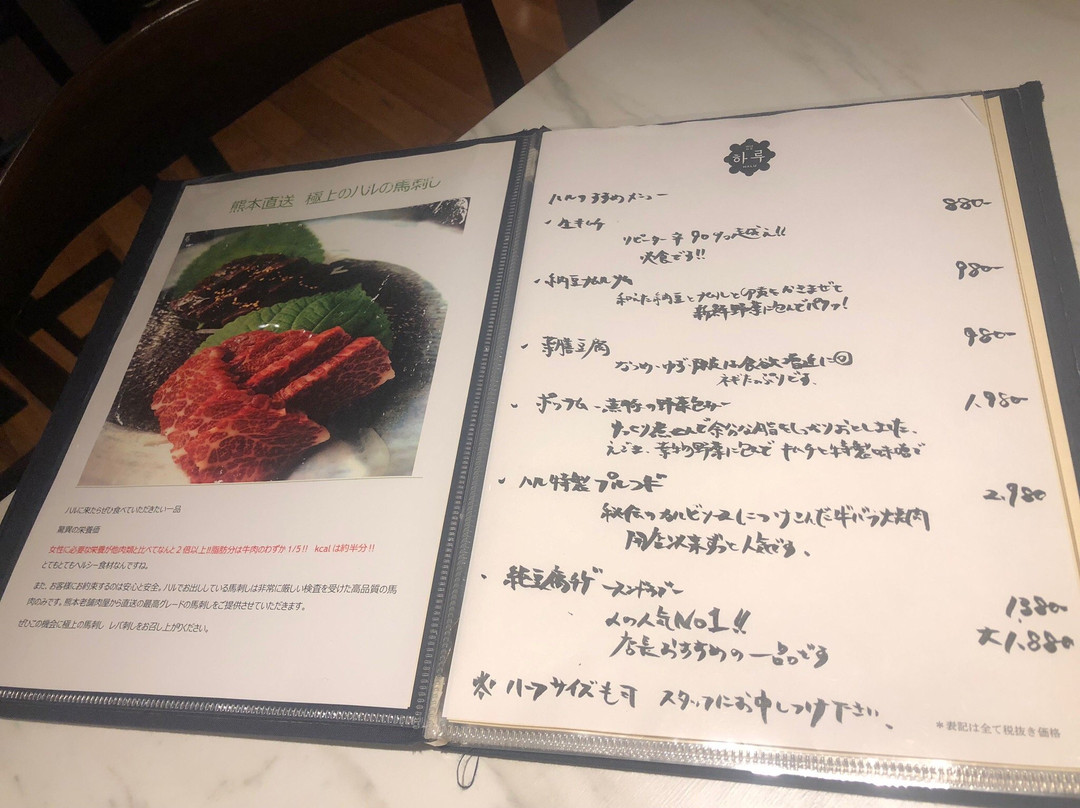 熊本直送 極上のハルの馬刺し
ハルに来たらぜひ食べていただきたい一品
驚異の栄養価
女性に必要な栄養が他肉類と比べてなんと2倍以上!!脂肪分は牛肉のわずか1/5!! kcalは約半分!!
とてもとてもヘルシー食材なんですね。
また、お客様にお約束するのは安心と安全。ハルでお出ししている馬刺しは非常に厳しい検査を受けた高品質の馬
肉のみです。熊本老舗肉屋から直送の最高グレードの馬刺しをご提供させていただきます。
ぜひこの機会に極上の馬刺し レバ刺しをお召し上がりください。
하루
ハルのすすめメニュー
・生キムチ 880-
リピーター率90%越え!!
必食です!!
・納豆ナムル 980-
和えた納豆とナムルと卵黄をかきまぜて
新鮮野菜に包んでパクッ!
薬膳豆腐 980-
なつめ、ゆず
ネギたっぷりです、
・ポッサム 蒸豚の野菜包み 1,980-
じっくり煮込んで余分な脂をしっかりおとしました、
えごま、季節の野菜に包んで キムチと特製味噌で
・ハル特製プルコギ 2,980
秘伝のカルビソースにつけこんだ牛バラ焼肉
開店以来ずっと人気です、
・純豆腐チゲ スンドゥブ 1,380-
人気No1!!
大1,880-
店長おすすめの一品です
※ハーフサイズも可 スタッフにお申しつけ下さい、
*表記は全て税抜き価格